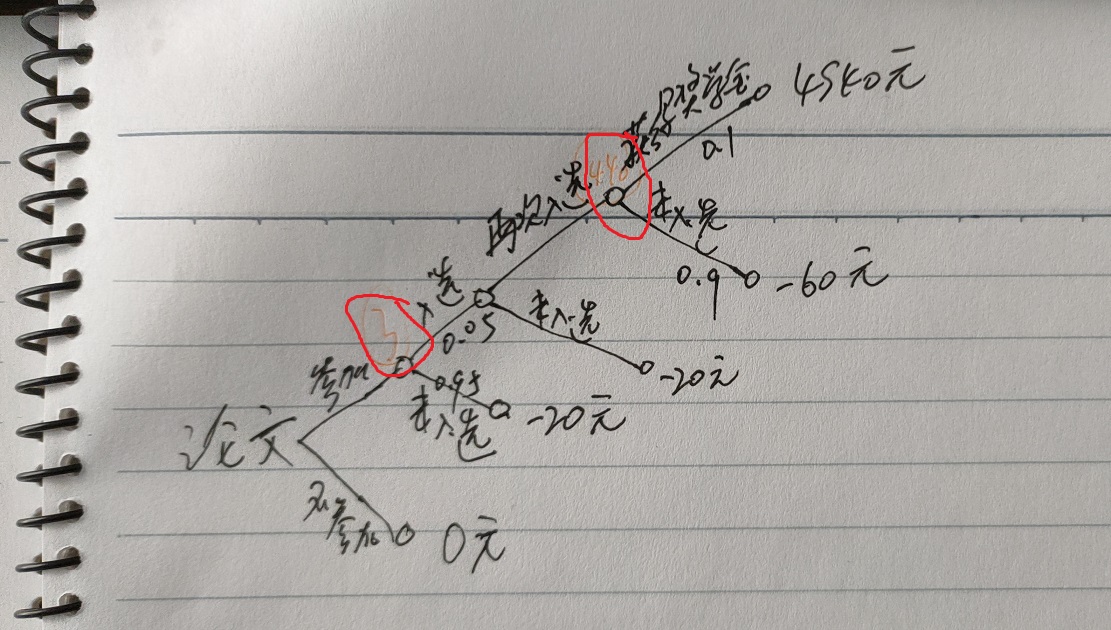 获得奖学金
4540元
0.1
440
再次入选
未入选
0.9
-60元
入选
0.05
未入选
-20元
3
参加
0.95
未入选
-20元
论文
不参加
0元